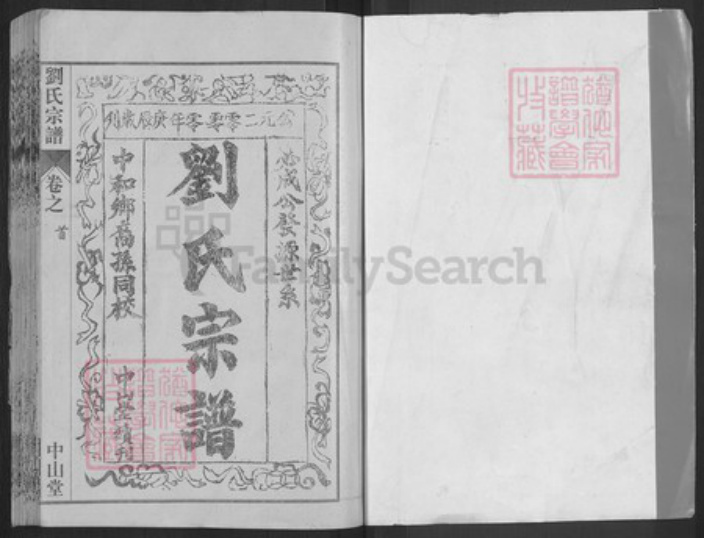 公元二零零零年庚辰歲刊
志成公發源世系
劉氏宗譜
中和鄉裔孫同校
中山堂續刊
劉氏宗譜
卷之
首
中山堂
FamilySearch
譜學會
收藏